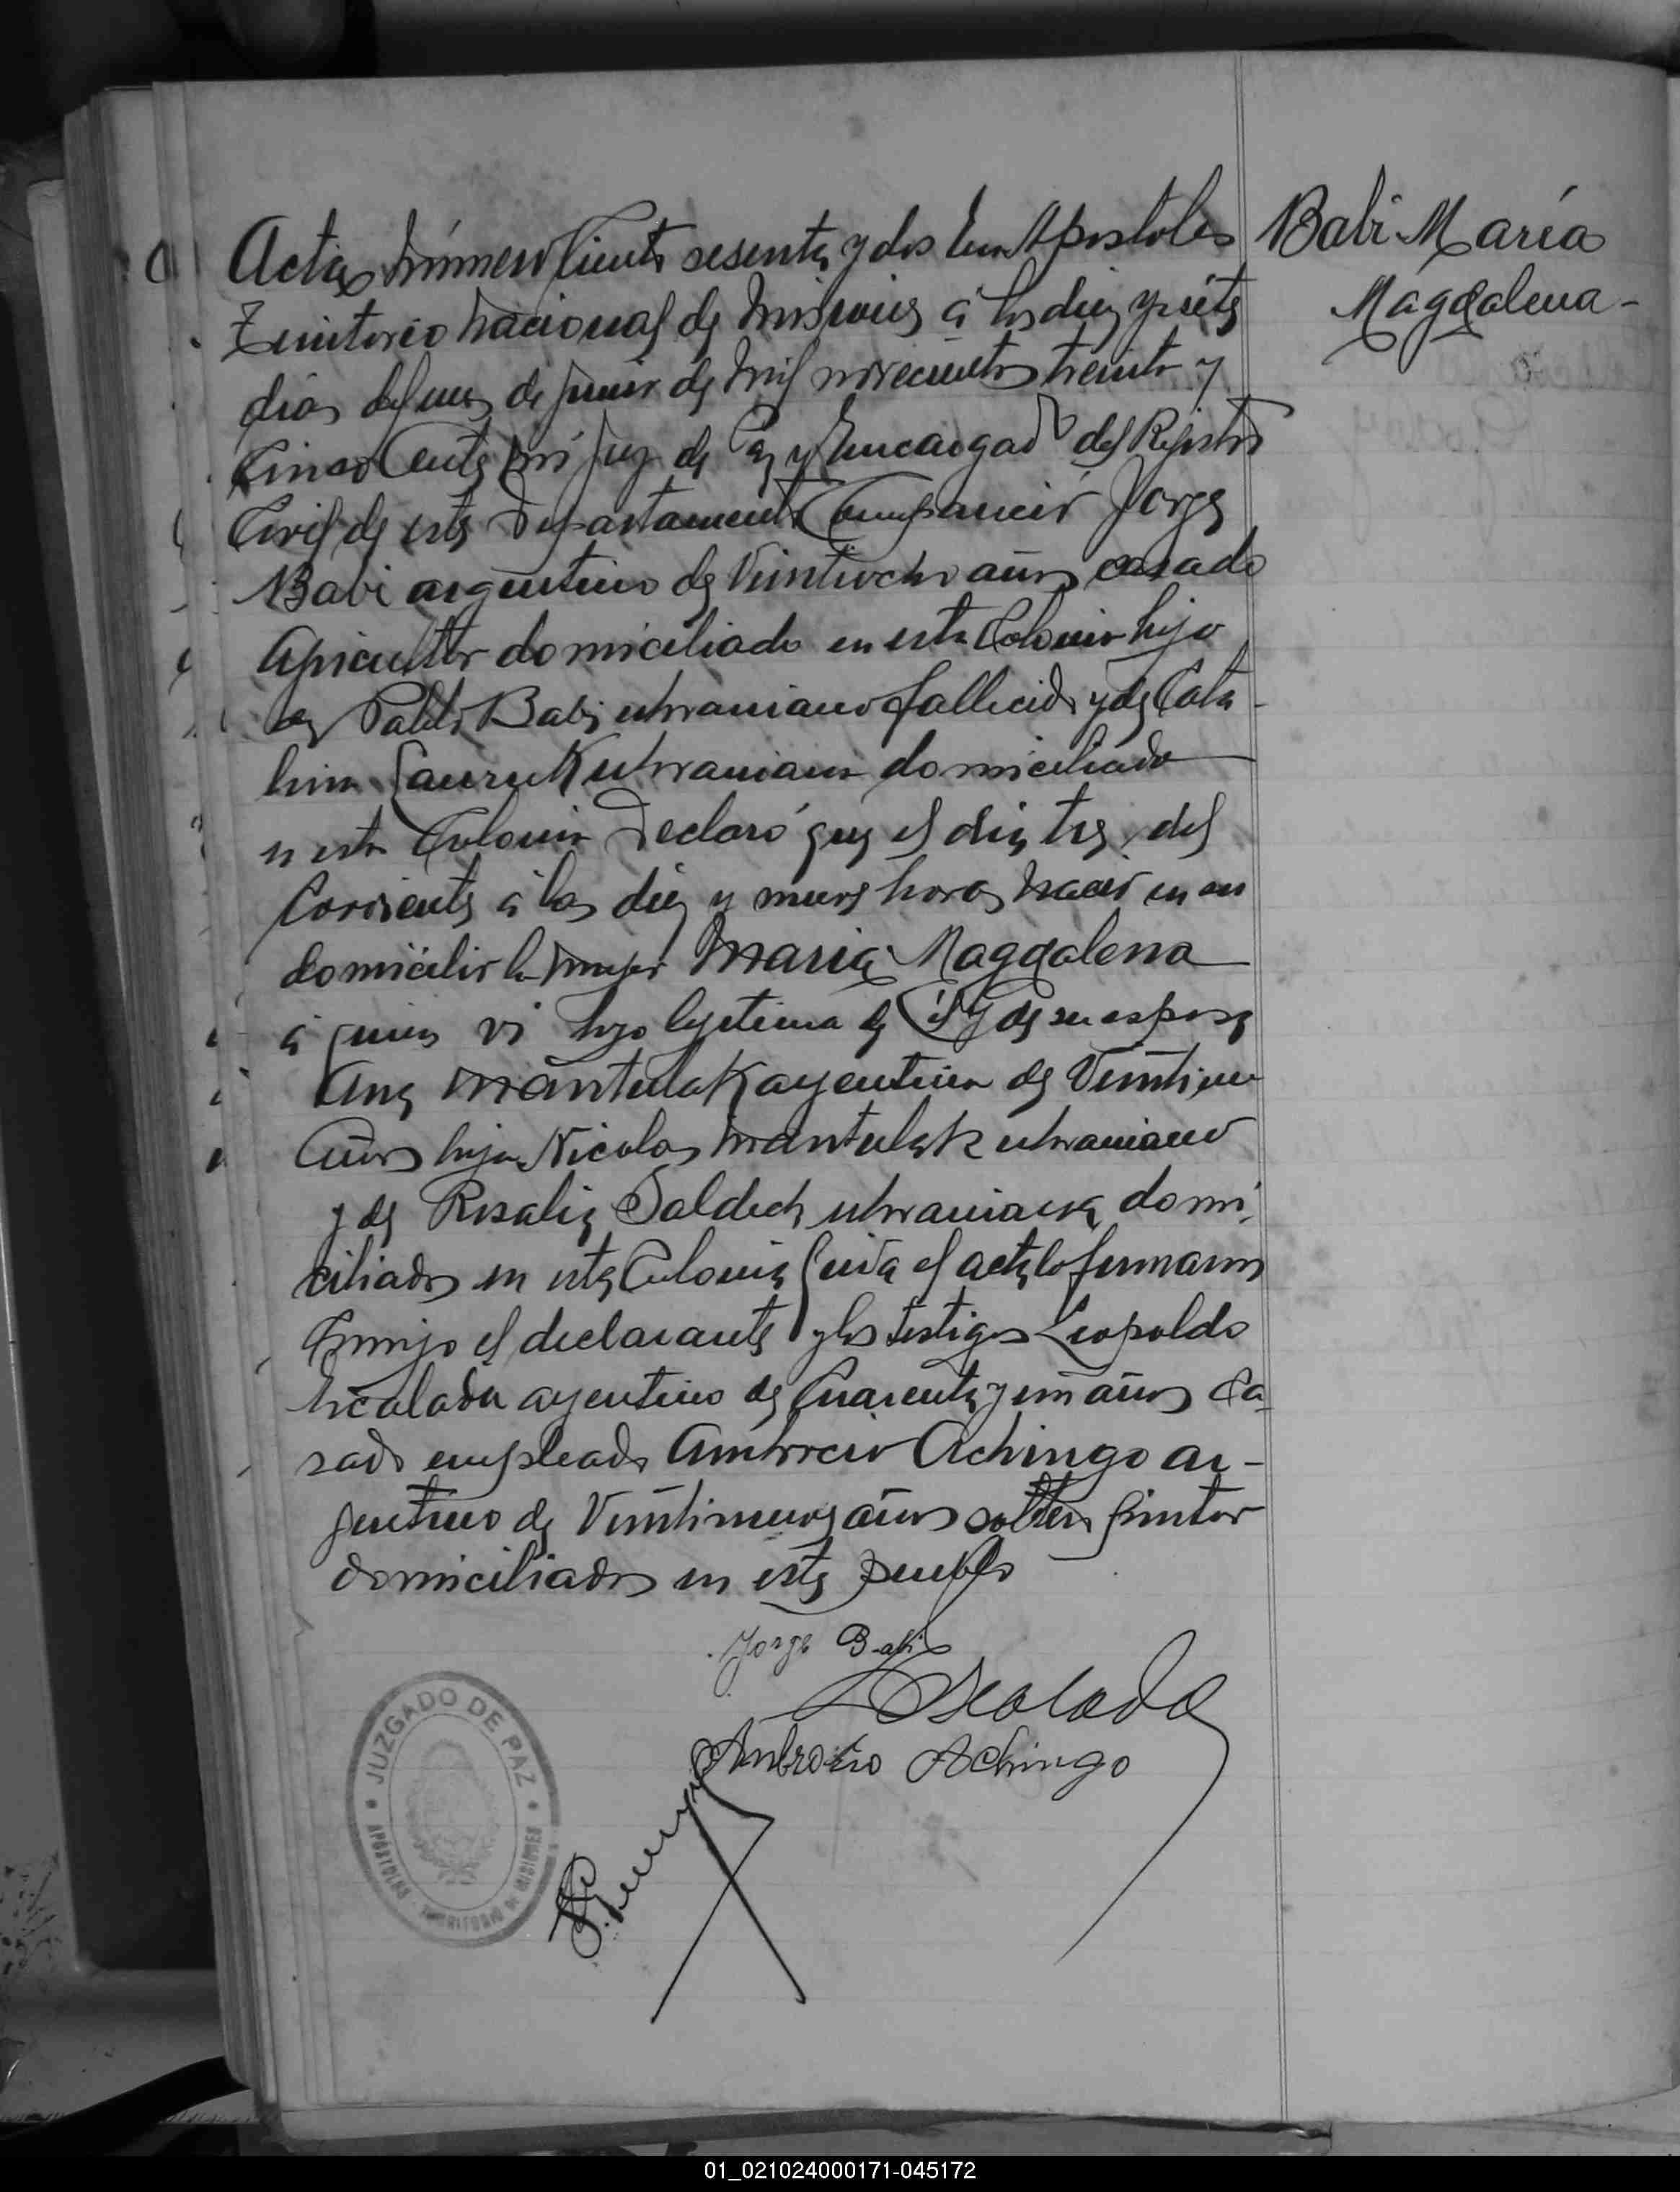 Acta número Ciento sesenta y dos En Apostoles
Territorio Nacional de Misiones á los diez y siete
dias del mes de Junio de Mil novecientos treinta y
Cinco Ante mí Juez de Paz y Encargado del Registro
Civil de este Departamento Compareció Jorge
Babi argentino de Veintiocho años casado
Agricultor domiciliado en esta Colonia hijo
de Pablo Babi ukraniano fallecido y de Cata-
lina Lauruk ukraniana domiciliada
en esta Colonia Declaró que el dia tres del
Corriente á las diez y nueve horas nació en su
domicilio la mujer Maria Magdalena
á quien vi hija legitima de él y de su esposa
Ana Mantulak argentina de Veintiun
Años hija Nicolas Mantulak ukraniano
y de Rosalia ukraniana domi-
ciliados en esta Colonia Leida el acta la firmaron
Conmigo el declarante y los testigos Leopoldo
Escalada argentino de Cuarenta y un años Ca-
sado empleado Ambrocio Achingo ar-
gentino de Veintinueve años soltero pintor
domiciliados en este pueblo
Jorge Babi
LEscalada
Ambrosio Achingo
Babi María
Magdalena-
JUZGADO DE PAZ
APOSTOLES - TERRITORIO DE MISIONES
01_021024000171-045172